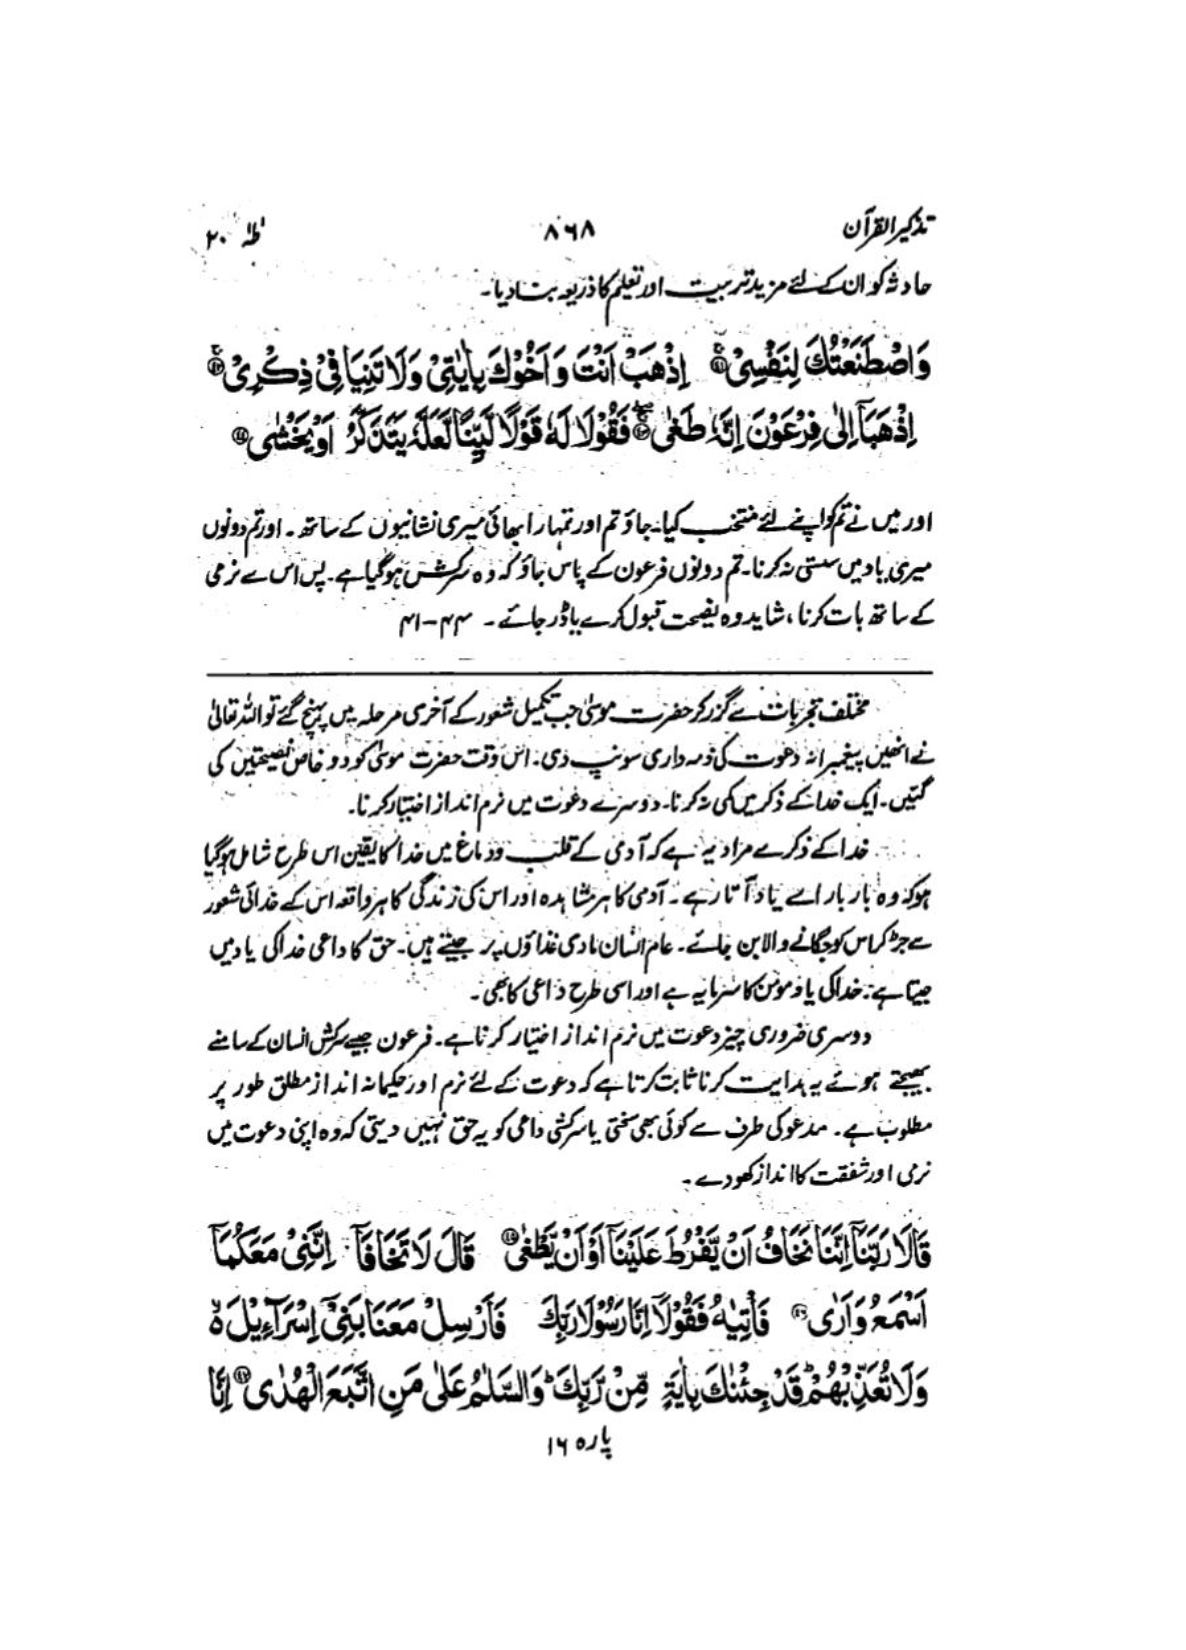 تذکیر القرآن ۸۶۸ طٰہٰ ۲۰
حادثہ کو ان کے لئے مزید تربیت اور تعلیم کا ذریعہ بنا دیا۔
وَاصْطَنَعْتُكَ لِنَفْسِیْ ۴۱ اِذْهَبْ اَنْتَ وَ اَخُوْكَ بِاٰیٰتِیْ وَلَا تَنِیَا فِیْ ذِكْرِیْ ۴۲
اِذْهَبَاۤ اِلٰی فِرْعَوْنَ اِنَّهٗ طَغٰی ۴۳ فَقُوْلَا لَهٗ قَوْلًا لَّیِّنًا لَّعَلَّهٗ یَتَذَكَّرُ اَوْ یَخْشٰی ۴۴
اور میں نے تم کو اپنے لئے منتخب کیا۔ جاؤ تم اور تمہارا بھائی میری نشانیوں کے ساتھ۔ اور تم دونوں
میری یاد میں سستی نہ کرنا۔ تم دونوں فرعون کے پاس جاؤ کہ وہ سرکش ہوگیا ہے۔ پس اس سے نرمی
کے ساتھ بات کرنا، شاید وہ نصیحت قبول کرے یا ڈر جائے۔ ۴۴-۴۱
مختلف تجربات سے گزر کر حضرت موسیٰ جب تکمیل شعور کے آخری مرحلہ میں پہنچ گئے تو اللہ تعالیٰ
نے انھیں پیغمبرانہ دعوت کی ذمہ داری سونپ دی۔ اس وقت حضرت موسیٰ کو دو خاص نصیحتیں کی
گئیں۔ ایک خدا کے ذکر میں کمی نہ کرنا۔ دوسرے دعوت میں نرم انداز اختیار کرنا۔
خدا کے ذکر سے مراد یہ ہے کہ آدمی کے قلب و دماغ میں خدا کا یقین اس طرح شامل ہوگیا
ہو کہ وہ بار بار اسے یاد آتا رہے۔ آدمی کا ہر مشاہدہ اور اس کی زندگی کا ہر واقعہ اس کے خدائی شعور
سے جڑ کر اس کو جگانے والا بن جائے۔ عام انسان مادی غذاؤں پر جیتے ہیں۔ حق کا داعی خدا کی یاد میں
جیتا ہے۔ خدا کی یاد مومن کا سرمایہ ہے اور اسی طرح داعی کا بھی۔
دوسری ضروری چیز دعوت میں نرم انداز اختیار کرنا ہے۔ فرعون جیسے سرکش انسان کے سامنے
بھیجتے ہوئے یہ ہدایت کرنا ثابت کرتا ہے کہ دعوت کے لئے نرم اور حکیمانہ انداز مطلق طور پر
مطلوب ہے۔ مدعو کی طرف سے کوئی بھی سختی یا سرکشی داعی کو یہ حق نہیں دیتی کہ وہ اپنی دعوت میں
نرمی اور شفقت کا انداز کھو دے۔
قَالَا رَبَّنَاۤ اِنَّنَا نَخَافُ اَنْ یَّفْرُطَ عَلَیْنَاۤ اَوْ اَنْ یَّطْغٰی ۴۵ قَالَ لَا تَخَافَاۤ اِنَّنِیْ مَعَكُمَاۤ
اَسْمَعُ وَ اَرٰی ۴۶ فَاْتِیٰهُ فَقُوْلَاۤ اِنَّا رَسُوْلَا رَبِّكَ فَاَرْسِلْ مَعَنَا بَنِیْۤ اِسْرَآءِیْلَ ۙ
وَلَا تُعَذِّبْهُمْ ؕ قَدْ جِئْنٰكَ بِاٰیَةٍ مِّنْ رَّبِّكَ ؕ وَالسَّلٰمُ عَلٰی مَنِ اتَّبَعَ الْهُدٰی ۴۷ اِنَّا
پارہ ۱۶